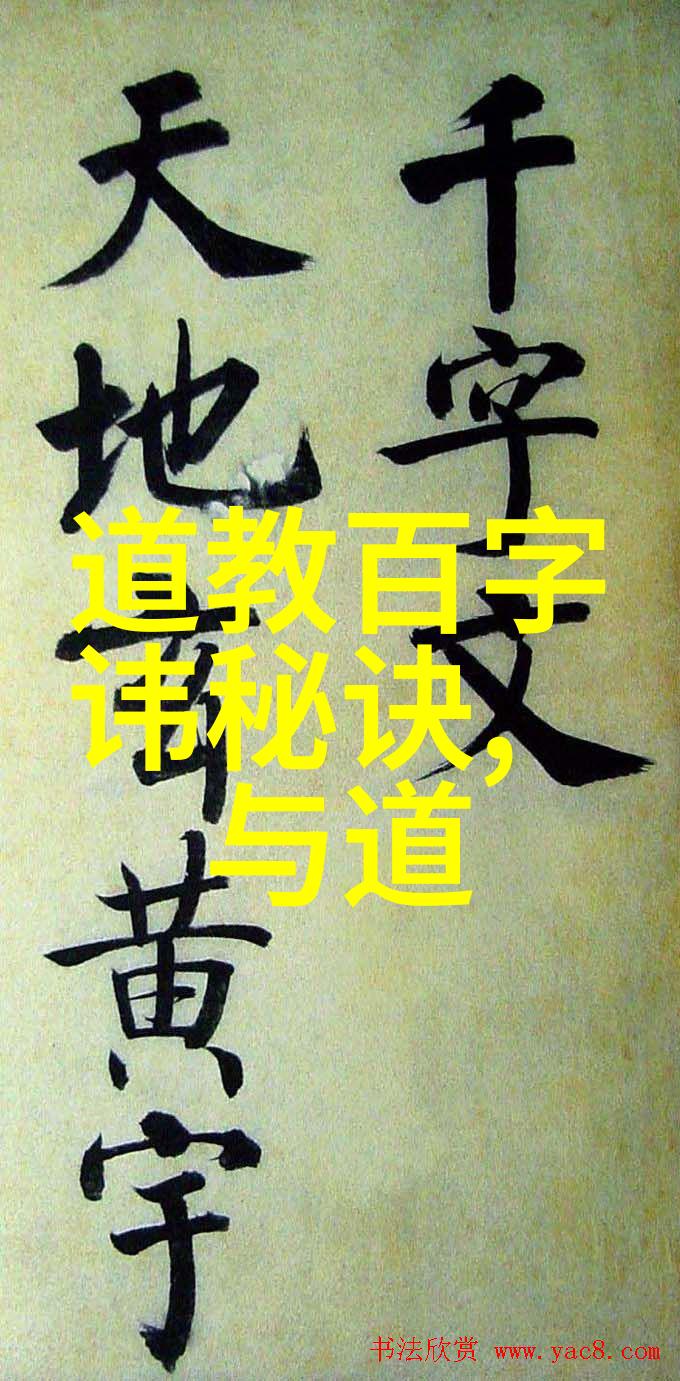 千字文
天地黄宇
道教百字
讳秘诀,
与道
书法欣赏 www.yac8.com